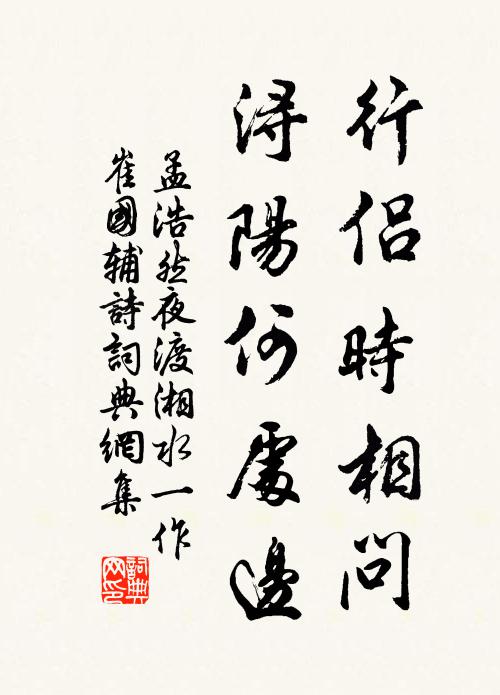 行侶時相問
潯陽何處邊
孟浩然夜渡湘水一作
崔國辅詩詞典網集
詞典
网印